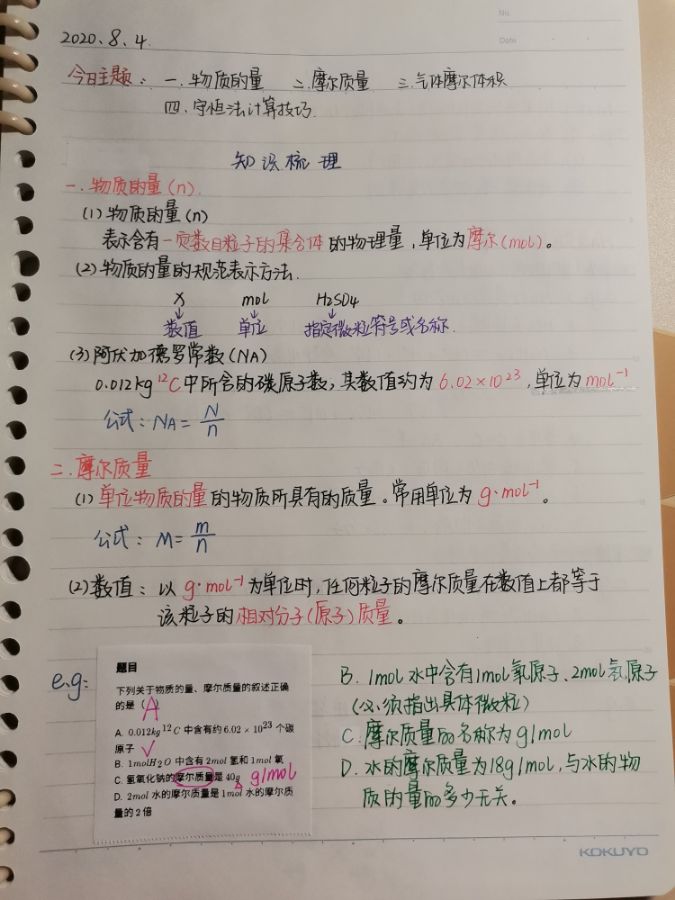 No
Date
2020.8.4.
今日主题: 一.物质的量 二.摩尔质量 三.气体摩尔体积
四.守恒法计算技巧.
知识梳理
一.物质的量(n).
(1)物质的量(n)
表示含有一定数目粒子的集合体的物理量,单位为摩尔(mol)。
(2)物质的量的规范表示方法.
X mol H2SO4
↓ ↓ ↓
数值 单位 指定微粒符号或名称.
(3)阿伏加德罗常数(NA)
0.012kg ¹²C中所含的碳原子数,其数值约为6.02×10²³,单位为mol⁻¹
公式: NA = N/n
二.摩尔质量
(1)单位物质的量的物质所具有的质量。常用单位为g·mol⁻¹。
公式: M = m/n
(2)数值: 以g·mol⁻¹为单位时,任何粒子的摩尔质量在数值上都等于
该粒子的相对分子(原子)质量。
e.g:
题目
下列关于物质的量、摩尔质量的叙述正确
的是( A
A. 0.012kg ¹²C 中含有约6.02 × 10²³ 个碳
原子 ✓
B. 1molH₂O 中含有 2mol 氢和 1mol 氧
C. 氢氧化钠的摩尔质量是 40g g/mol
D. 2mol 水的摩尔质量是 1mol 水的摩尔质
量的 2 倍
B. 1mol水中含有1mol氧原子、2mol氢原子
(必须指出具体微粒)
C. 摩尔质量的名称为g/mol
D. 水的摩尔质量为18g/mol,与水的物
质的量的多少无关。
KOKUYO